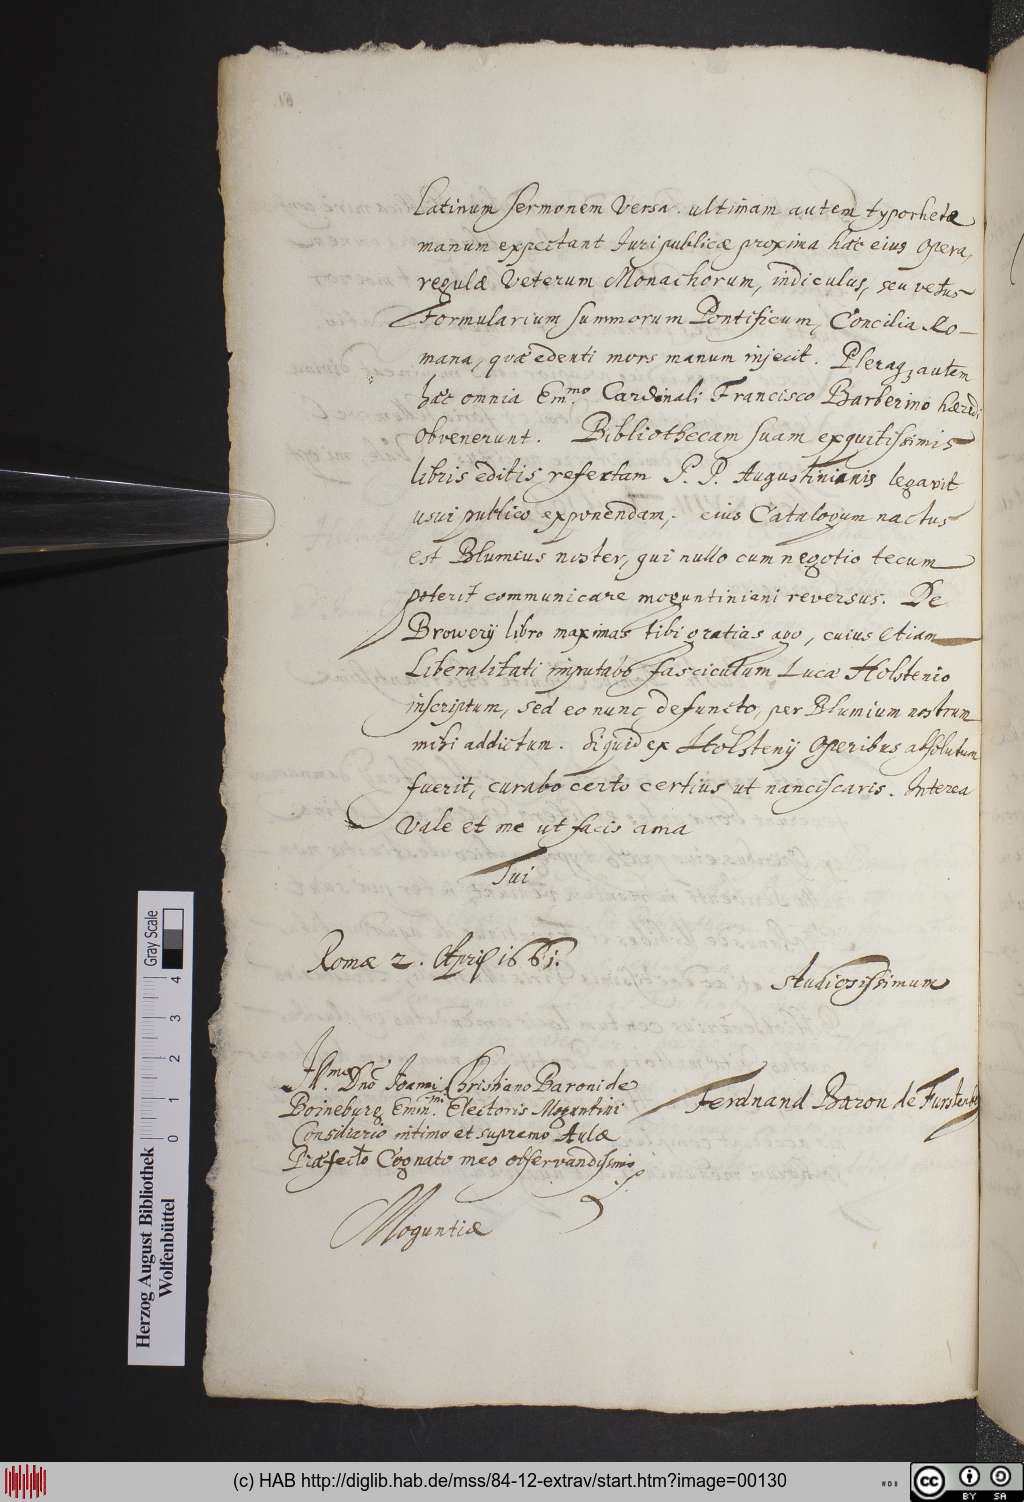 Latinum sermonem versa. ultimam autem typorhetæ
manum expectant Juri publicæ proxima hæc eius opera,
regulæ Veterum Monachorum, indiculus, seu vetus
Formularium summorum Pontificum, Concilia Ro-
mana, quæ edenti mors manum injecit. Pleraq3 autem
hæc omnia Em.mo Cardinali Francisco Barberino hæredi
obvenerunt. Bibliothecam suam exquitissimis
libris editis refertam P. P. Augustinianis legavit
usui publico exponendam, eius Catalogum nactus
est Blumius noster, qui nullo cum negotio tecum
poterit communicare moguntiniani reversus. De
Browerij libro maximas tibi gratias ago, cuius etiam
Liberalitati imputabo fasciculum Lucæ Holstenio
inscriptum, sed eo nunc defuncto, per Blumium nostrum
mihi addictum. Siquid ex Holstenij operibus absolutum
fuerit, curabo certo certius ut nanciscaris. Interea
Vale et me ut facis ama
Tui
Romæ 2. April 1661.
studiosissimum
Ill.mo Dno Joanni Christiano Baroni de
Boineburg Emin.mi Electoris Mogantini
Consiliario intimo et supremo Aulæ
Præfecto Cognato meo observandissimo
Ferdnand Baron de Furstenb
Moguntiæ
Herzog August Bibliothek
Wolfenbüttel
0 1 2 3 4
Gray Scale
(c) HAB http://diglib.hab.de/mss/84-12-extrav/start.htm?image=00130
WDB
cc BY SA